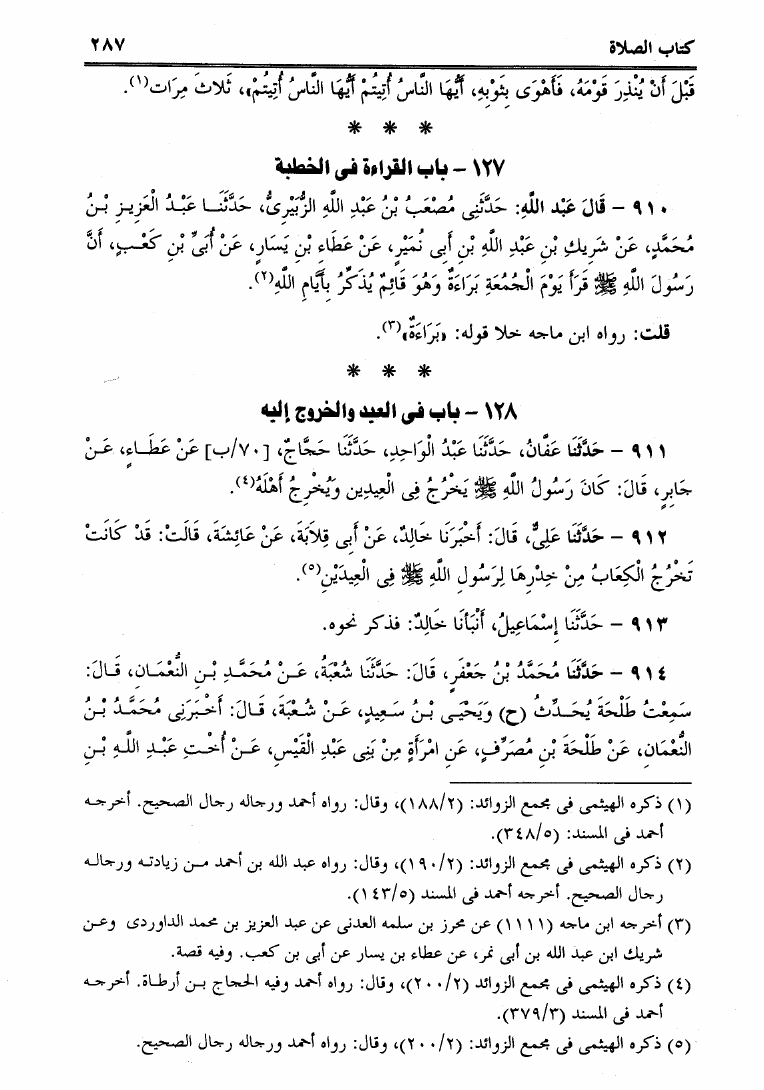 كتاب الصلاة ٢٨٧
قَبْلَ أَنْ يُنْذِرَ قَوْمَهُ، فَأَهْوَى بِثَوْبِهِ، أَيُّهَا النَّاسُ أُتِيتُمْ أَيُّهَا النَّاسُ أُتِيتُمْ»، ثَلاثَ مِرَات(١).
* * *
١٢٧ – باب القراءة فى الخطبة
٩١٠ – قَالَ عَبْد اللَّهِ: حَدَّثَنِى مُصْعَبُ بْنُ عَبْدِ اللَّهِ الزُّبَيْرِىُّ، حَدَّثَنَا عَبْدُ الْعَزِيزِ بْنُ
مُحَمَّدٍ، عَنْ شَرِيكِ بْنِ عَبْدِ اللَّهِ بْنِ أَبِى نُمَيْرٍ، عَنْ عَطَاءِ بْنِ يَسَارٍ، عَنْ أُبَىِّ بْنِ كَعْبٍ، أَنَّ
رَسُولَ اللَّهِ ﷺ قَرَأَ يَوْمَ الْجُمُعَةِ بَرَاءَةٌ وَهُوَ قَائِمٌ يُذَكِّرُ بِأَيَّامِ اللَّهِ(٢).
قلت: رواه ابن ماجه خلا قوله: «بَرَاءَةٌ»(٣).
* * *
١٢٨ – باب فى العيد والخروج إليه
٩١١ – حَدَّثَنَا عَفَّانُ، حَدَّثَنَا عَبْدُ الْوَاحِدِ، حَدَّثَنَا حَجَّاجٌ، [٧٠/ب] عَنْ عَطَاءٍ، عَنْ
جَابِرٍ، قَالَ: كَانَ رَسُولُ اللَّهِ ﷺ يَخْرُجُ فِى الْعِيدِين وَيُخْرِجُ أَهْلَهُ(٤).
٩١٢ – حَدَّثَنَا عَلِىٌّ، قَالَ: أَخْبَرَنَا خَالِدٌ، عَنْ أَبِى قِلابَةَ، عَنْ عَائِشَةَ، قَالَتْ: قَدْ كَانَتْ
تَخْرُجُ الْكِعَابُ مِنْ خِدْرِهَا لِرَسُولِ اللَّهِ ﷺ فِى الْعِيدَيْنِ(٥).
٩١٣ – حَدَّثَنَا إِسْمَاعِيلُ، أَنْبَأَنَا خَالِدٌ: فذكر نحوه.
٩١٤ – حَدَّثَنَا مُحَمَّدُ بْنُ جَعْفَرٍ، قَالَ: حَدَّثَنَا شُعْبَةُ، عَنْ مُحَمَّدِ بْنِ النُّعْمَانِ، قَالَ:
سَمِعْتُ طَلْحَةَ يُحَدِّثُ (ح) وَيَحْيَى بْنُ سَعِيدٍ، عَنْ شُعْبَةَ، قَالَ: أَخْبَرَنِى مُحَمَّدُ بْنُ
النُّعْمَانِ، عَنْ طَلْحَةَ بْنِ مُصَرِّفٍ، عَنِ امْرَأَةٍ مِنْ بَنِى عَبْدِ الْقَيْسِ، عَنْ أُخْتِ عَبْدِ اللَّهِ بْنِ
(١) ذكره الهيثمى فى مجمع الزوائد: (١٨٨/٢)، وقال: رواه أحمد ورجاله رجال الصحيح. أخرجه
أحمد فى المسند: (٣٤٨/٥).
(٢) ذكره الهيثمى فى مجمع الزوائد: (١٩٠/٢)، وقال: رواه عبد الله بن أحمد من زيادته ورجاله
رجال الصحيح. أخرجه أحمد فى المسند (١٤٣/٥).
(٣) أخرجه ابن ماجه (١١١١) عن محرز بن سلمه العدنى عن عبد العزيز بن محمد الداوردى وعن
شريك ابن عبد الله بن أبى نمر، عن عطاء بن يسار عن أبى بن كعب. وفيه قصة.
(٤) ذكره الهيثمى فى مجمع الزوائد (٢٠٠/٢)، وقال: رواه أحمد وفيه الحجاج بن أرطاة. أخرجه
أحمد فى المسند (٣٧٩/٣).
(٥) ذكره الهيثمى فى مجمع الزوائد: (٢٠٠/٢)، وقال: رواه أحمد ورجاله رجال الصحيح.